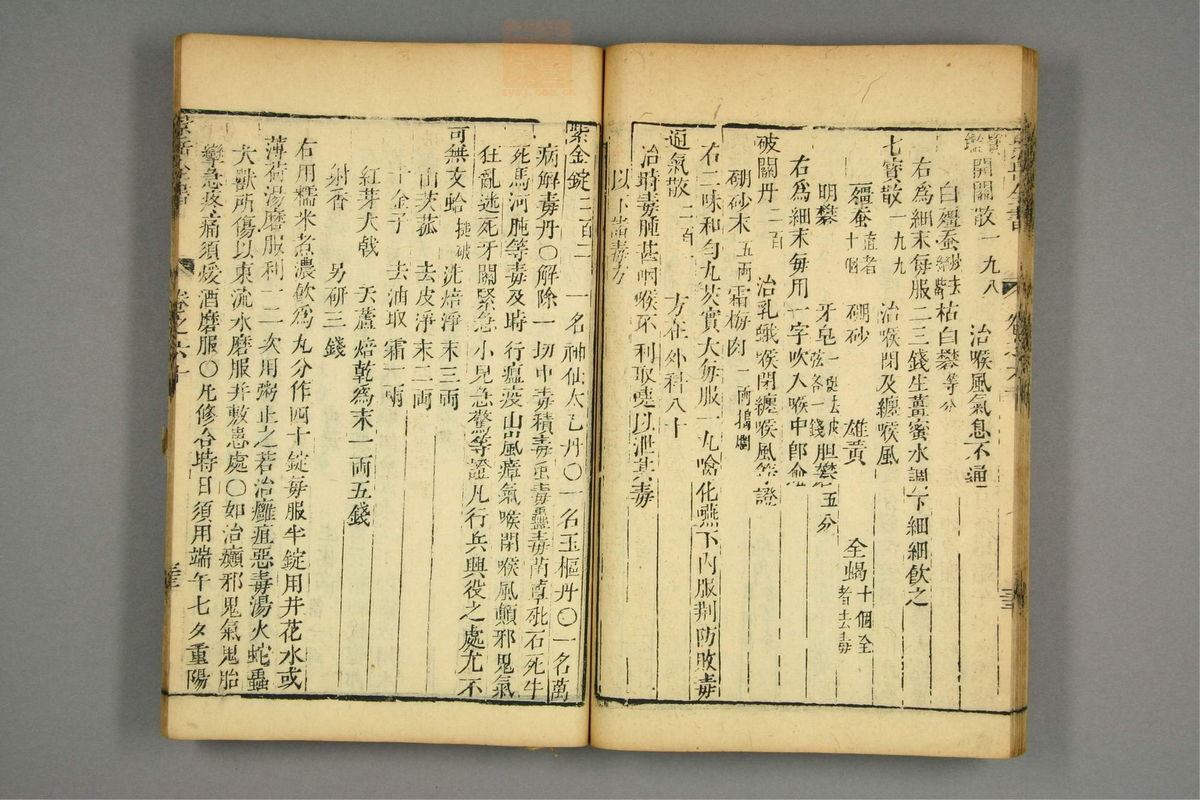 景岳全書
開關散一九八 治喉風氣息不通
白殭蚕炒去絲嘴 枯白礬等分
右為細末每服二三錢生薑蜜水調下細細飲之
七寶散一九九 治喉閉及纏喉風
殭蚕直者十個 硼砂 雄黃 全蝎十個全者去毒
明礬 牙皂一莢去皮弦各一錢 胆礬五分
右為細末每用一字吹入喉中即愈
破關丹二百 治乳蛾喉閉纏喉風等證
硼砂末五両 霜梅肉一両搗爛
右二味和勻丸芡實大每服一丸噙化嚥下內服荆防敗毒
通氣散二百一 方在外科八十
治時毒腫甚咽喉不利取嚏以泄其毒
以下諸毒方
紫金錠二百二 一名神仙太乙丹〇一名玉樞丹〇一名萬
病解毒丹〇解除一切中毒積毒虫毒蠱毒菌蕈砒石死牛
死馬河肫等毒及時行瘟疫山嵐瘴氣喉閉喉風顛邪鬼氣
狂亂迷死牙關緊急小兒急驚等證凡行兵興役之處尤不
可無 文蛤搥破 洗焙淨末三両
山茨菰 去皮淨末二両
千金子 去油取霜一両
紅芽大戟 天蘆焙乾為末一両五錢
射香 另研三錢
右用糯米煮濃飲為丸分作四十錠每服半錠用井花水或
薄荷湯磨服利一二次用粥止之若治癰疽惡毒湯火蛇蟲
犬獸所傷以東流水磨服并敷患處〇如治癲邪鬼氣鬼胎
攣急疼痛須煖酒磨服〇凡修合時日須用端午七夕重陽